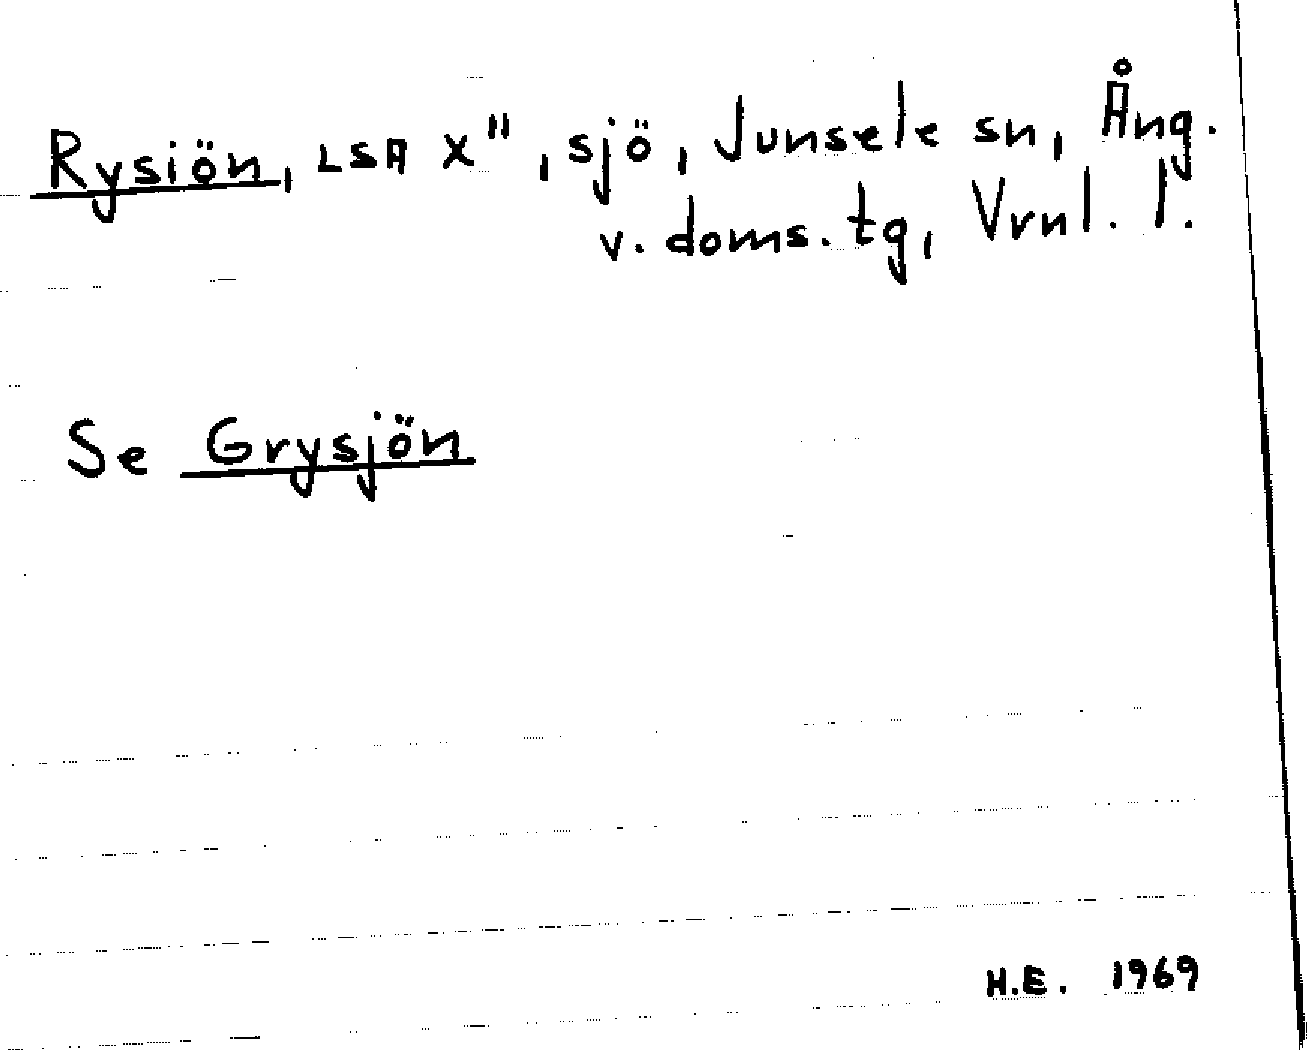 Rysiön, LSA X", sjö, Junsele sn, Ång.
v. doms. tg, Vrnl. l.
Se Grysjön
H.E. 1969